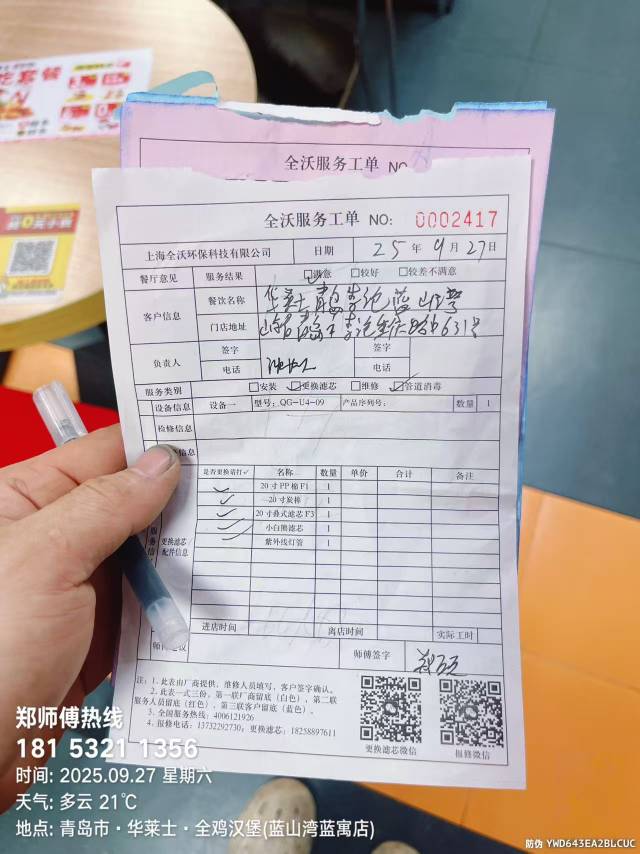 吃套餐
全沃服务工单 NO
全沃服务工单 NO: 0002417
上海全沃环保科技有限公司 日期 25 年 9 月 27 日
餐厅意见 服务结果 ☑满意 □较好 □较差不满意
客户信息 餐饮名称 华莱士青岛李沧蓝山湾
门店地址 李沧重庆路631号
负责人 签字 签字
电话 电话
服务类别 □安装 ☑更换滤芯 □维修 ☑管道消毒
设备信息 设备一 型号: QG-U4-09 产品序列号: 数量 1
检修信息
信息
是否更换请打✓ 名称 数量 单价 合计 备注
✓ 20寸PP棉F1 1
✓ 20寸炭棒 1
✓ 20寸叠式滤芯F3 1
✓ 小白熊滤芯 1
✓ 紫外线灯管 1
更换滤芯
配件信息
进店时间 离店时间 实际工时
师傅建议 师傅签字
注: 1. 此表由厂商提供, 维修人员填写, 客户签字确认。
2. 此表一式三份, 第一联厂商留底 (白色)、第二联
服务人员留底 (红色)、第三联客户留底 (蓝色)。
3. 全国服务热线: 4006121926
4. 报修电话: 13732292730; 更换滤芯: 18258897611
更换滤芯微信 报修微信
郑师傅热线
181 5321 1356
时间: 2025.09.27 星期六
天气: 多云 21℃
地点: 青岛市·华莱士·全鸡汉堡(蓝山湾蓝寓店)
防伪 YWD643EA2BLCUC